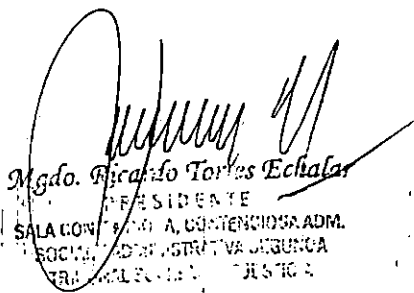 Mgdo. Ricardo Torres Echalar
PRESIDENTE
SALA CONTENCIOSA, CONTENCIOSA ADM.
SOCIAL ADMINISTRATIVA SEGUNDA
TRIBUNAL JUSTICIA